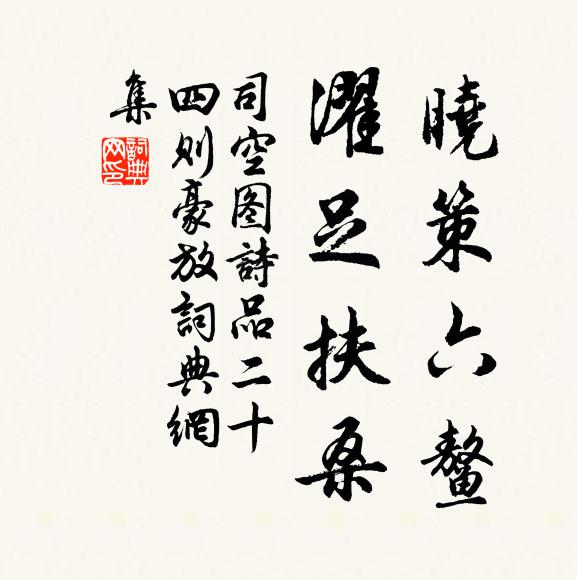 曉策六鰲
濯足扶桑
司空图詩品二十
四则豪放詞典網
集
詞典网印